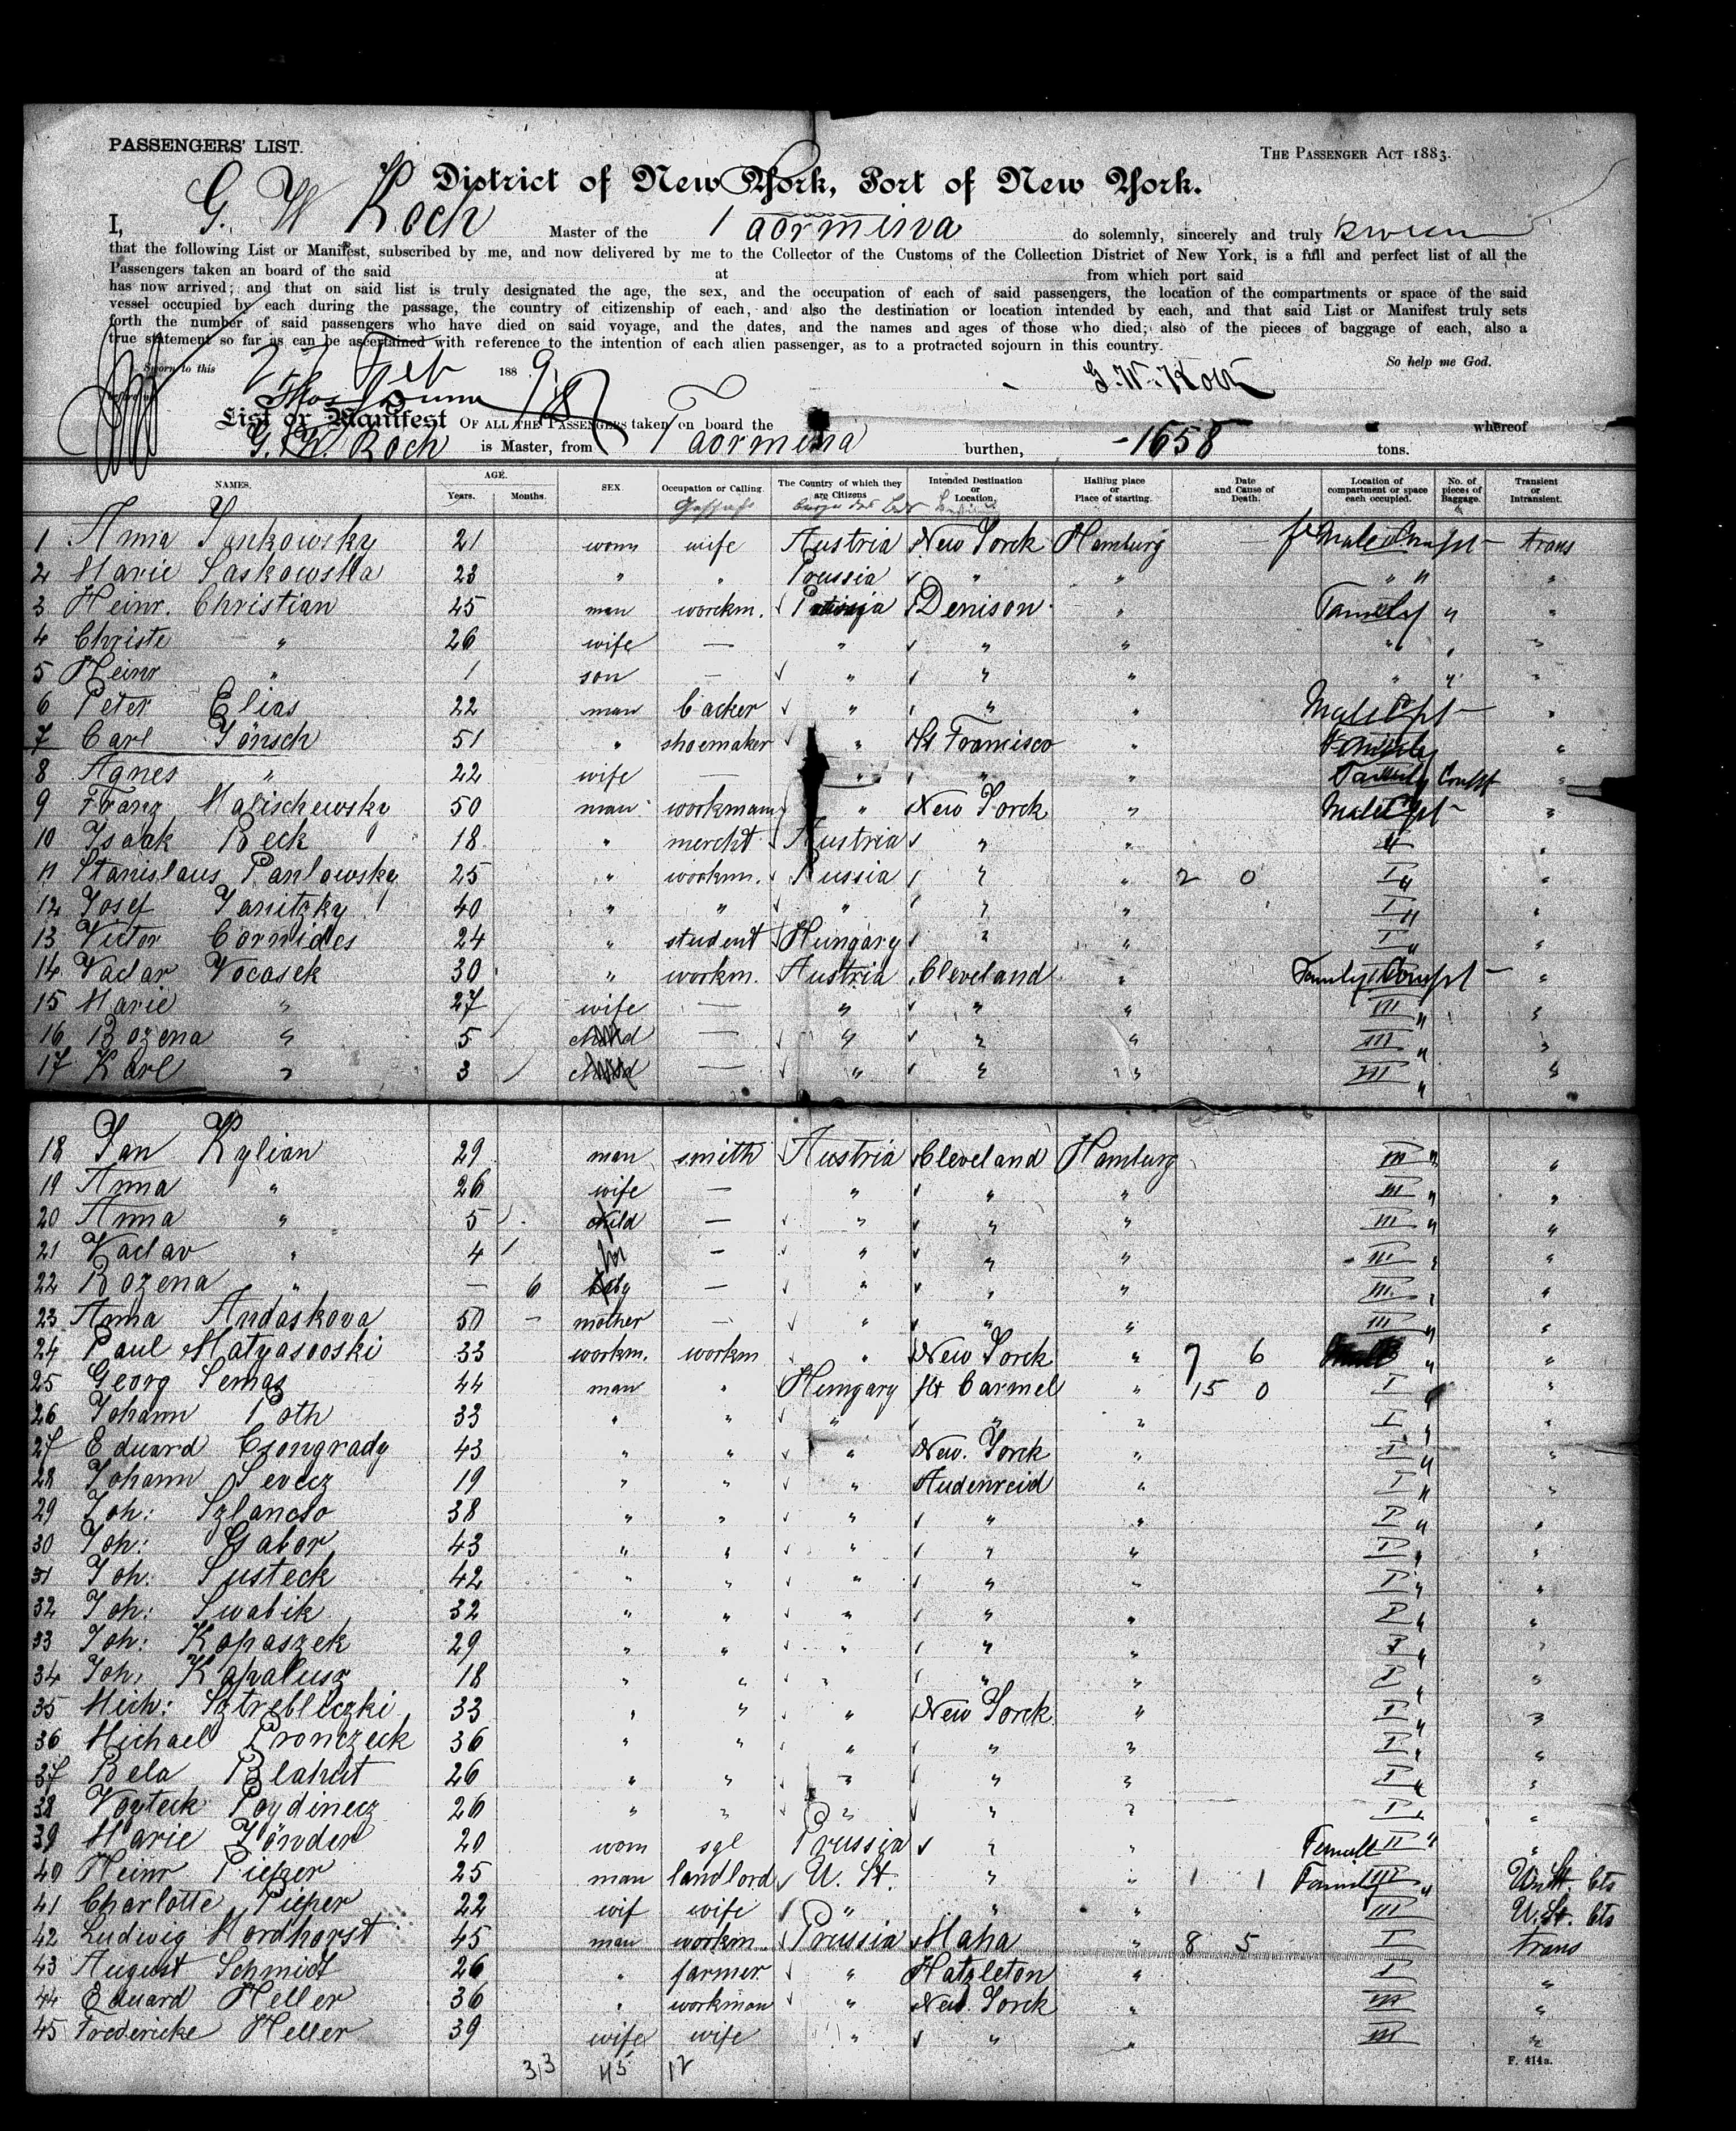 PASSENGERS' LIST.
THE PASSENGER ACT 1883.
District of New York, Port of New York.
I, G. W Koch Master of the Taormina do solemnly, sincerely and truly
that the following List or Manifest, subscribed by me, and now delivered by me to the Collector of the Customs of the Collection District of New York, is a full and perfect list of all the
Passengers taken an board of the said at from which port said
has now arrived; and that on said list is truly designated the age, the sex, and the occupation of each of said passengers, the location of the compartments or space of the said
vessel occupied by each during the passage, the country of citizenship of each, and also the destination or location intended by each, and that said List or Manifest truly sets
forth the number of said passengers who have died on said voyage, and the dates, and the names and ages of those who died; also of the pieces of baggage of each, also a
true statement so far as can be ascertained with reference to the intention of each alien passenger, as to a protracted sojourn in this country.
So help me God.
Sworn to this 27 Feb 1889
G. W. Koch
List or Manifest OF ALL THE PASSENGERS taken on board the Taormina whereof
G. W. Koch is Master, from burthen, -1658 tons.
NAMES. AGE. Years. Months. SEX. Occupation or Calling. The Country of which they are Citizens Intended Destination or Location. Hailing place or Place of starting. Date and Cause of Death. Location of compartment or space each occupied. No. of pieces of Baggage. Transient or Intransient.
1 Anna Jankowsky 21 wom wife Austria New Yorck Hamburg trans
2 Marie Laskowska 23 " " Prussia " " " " "
3 Heinr. Christian 25 man worckm. Denison " Family " "
4 Christe " 26 wife — " " " " " "
5 Heinr " 1 son — " " " " " "
6 Peter Elias 22 man backer " " " Male Cpt "
7 Carl Jönsch 51 " shoemaker " St Francisco " "
8 Agnes " 22 wife — " " " Family Compt "
9 Franz Malischewsky 50 man workmann " New Yorck " Male Cpt "
10 Isaak Beck 18 " mercht Austria " " " "
11 Stanislaus Panlowsky 25 " workm. Russia " " 2 0 I " "
12 Josef Janitzky 40 " " " " " I " "
13 Victor Cornides 24 " student Hungary " " I " "
14 Vaclav Vocasek 30 " workm. Austria Cleveland " Family Compt "
15 Marie " 27 wife — " " " III " "
16 Bozena " 5 child — " " " III " "
17 Karl " 3 child — " " " III " "
18 Jan Kylian 29 man smith Austria Cleveland Hamburg III " "
19 Anna " 26 wife — " " " III " "
20 Anna " 5 child — " " " III " "
21 Vaclav " 4 — " " " III " "
22 Bozena " — 6 baby — " " " III " "
23 Anna Andaskova 50 — mother — " " " III " "
24 Paul Matyasooski 33 workm. workm " New Yorck " 7 6 " "
25 Georg Semas 44 man " Hungary Mt Carmel " 15 0 I " "
26 Johann Poth 33 " " " " " I " "
27 Eduard Csongrady 43 " " " New. Yorck " I " "
28 Johann Sevecz 19 " " " Audenreid " I " "
29 Joh: Szlancso 38 " " " " " I " "
30 Joh: Gabor 43 " " " " " I " "
31 Joh: Susteck 42 " " " " " I " "
32 Joh: Swabik 32 " " " " " I " "
33 Joh: Kopaszek 29 " " " " " I " "
34 Joh: Kapalusz 18 " " " " " I " "
35 Mich: Sztrebliczki 33 " " " New Yorck " I " "
36 Michael Pronczeck 36 " " " " " I " "
37 Bela Blahut 26 " " " " " I " "
38 Voyteck Poydinecz 26 " " " " " I " "
39 Marie Jönder 20 wom sgl Prussia " " Female II " "
40 Heinr Pieper 25 man landlord U. St. " " 1 1 Family III " U. St. Cts
41 Charlotte Pieper 22 wif wife " " " III U. St. Cts
42 Ludwig Mordhorst 45 man workm. Prussia Maha " 8 5 I trans
43 August Schmidt 26 " farmer " Hatzleton " I "
44 Eduard Heller 36 " workman " New. Yorck " III "
45 Fredericke Heller 39 wife wife " " " III "
313 45 12
F. 414a.